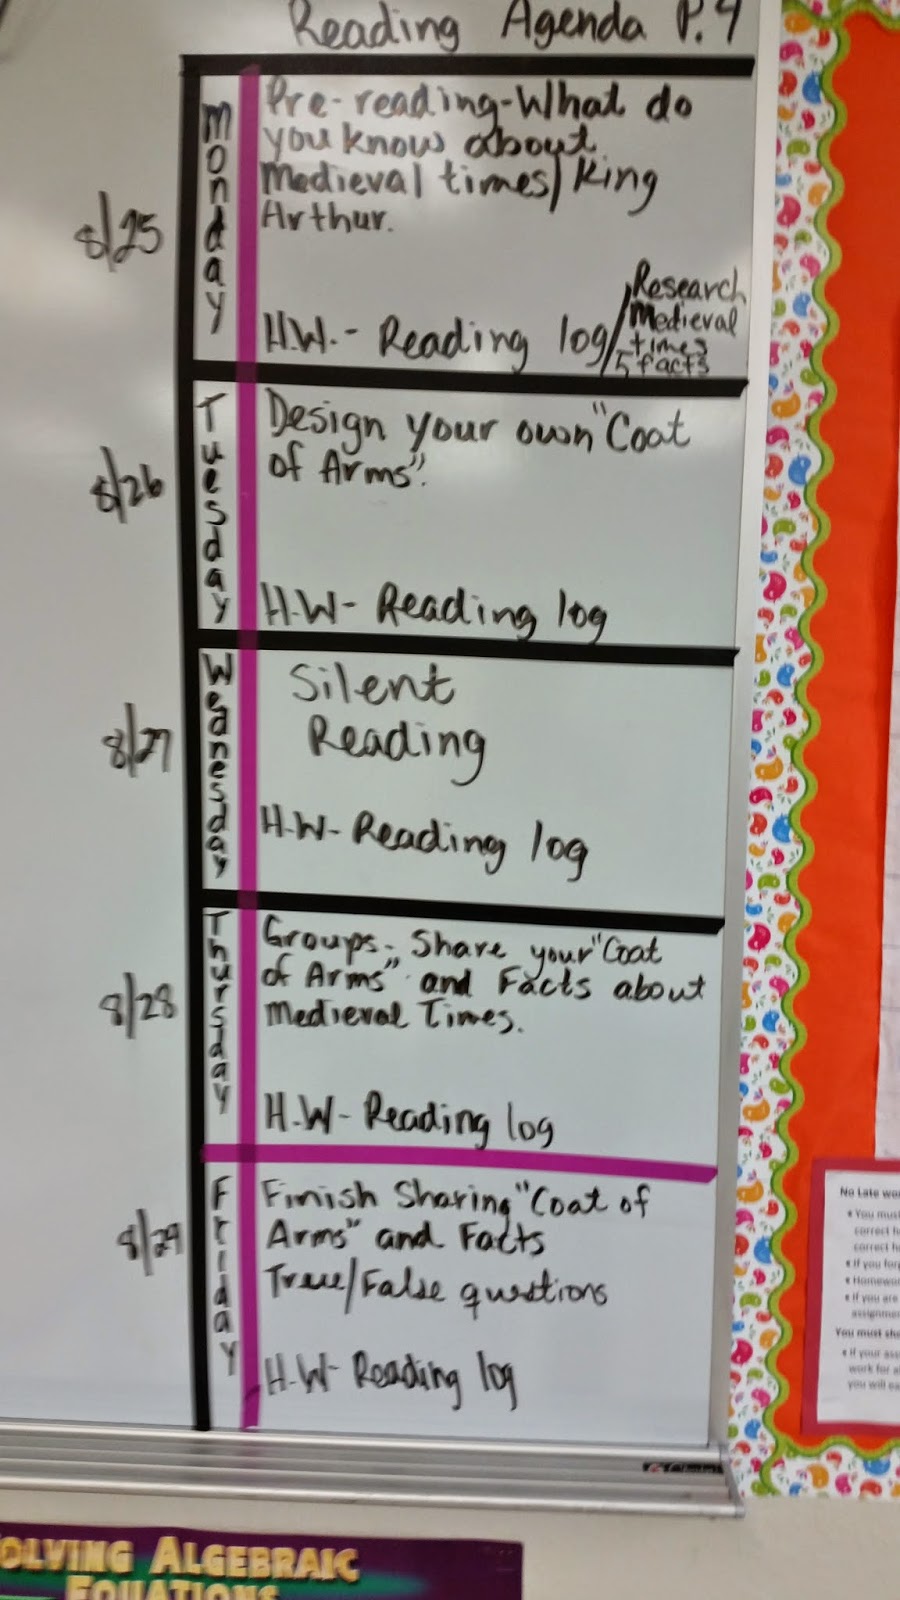 Reading Agenda P.4
8/25
Monday
Pre-reading-What do
you know about
Medieval times/King
Arthur.
H.W.- Reading log/
Research
Medieval
times
5 facts
8/26
Tuesday
Design your own "Coat
of Arms".
H.W- Reading log
8/27
Wednesday
Silent
Reading
H.W- Reading log
8/28
Thursday
Groups- Share your "Coat
of Arms" and Facts about
Medieval Times.
H.W- Reading log
8/29
Friday
Finish Sharing "Coat of
Arms" and Facts
True/False questions
H.W- Reading log
No Late wo
• You must
correct h
correct h
• If you for
• Homewor
• If you are
assignme
You must sh
• If your ass
work for a
you will ea
OLVING ALGEBRAIC
EQUATIONS